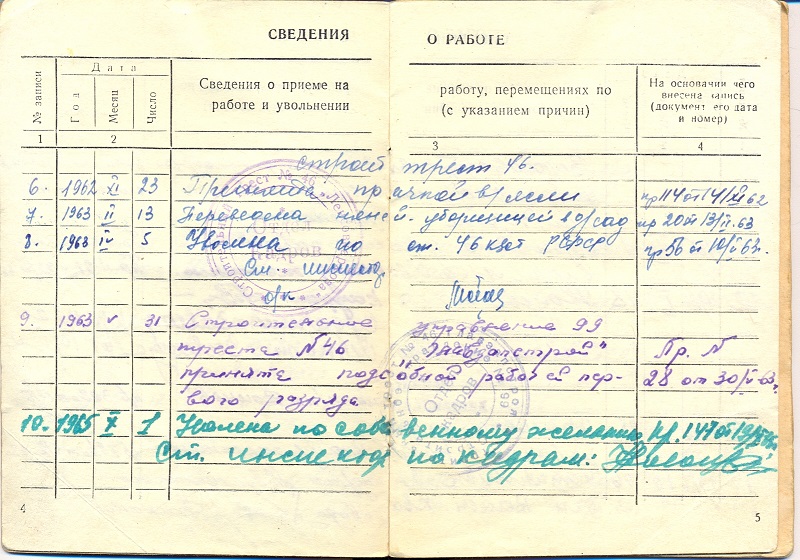 СВЕДЕНИЯ О РАБОТЕ
№ записи
Дата
Год
Месяц
Число
Сведения о приеме на
работе и увольнении
работу, перемещениях по
(с указанием причин)
На основании чего
внесена запись
(документ его дата
и номер)
1 2 3 4
строй трест 46.
6. 1962 XI 23 Принята прачкой в/ясли пр 114 от 14/XI 62
7. 1963 II 13 Переведена няней-уборщицей в д/сад пр 20 от 13/II.63
8. 1963 IV 5 Уволена по ст. 46 кзот РСФСР пр 56 от 10/
См. инспектор
о/к
9. 1963 V 31 Строительное управление 99
треста N46 "Заводстрой" Пр. N
принята подсобной рабочей пер- 28 от 30/V-63г.
вого разряда
10. 1965 X 1 Уволена по собственному желанию Пр. 147 от
Ст. инспектор по кадрам:
Отдел
кадров
Отдел
кадров
4
5